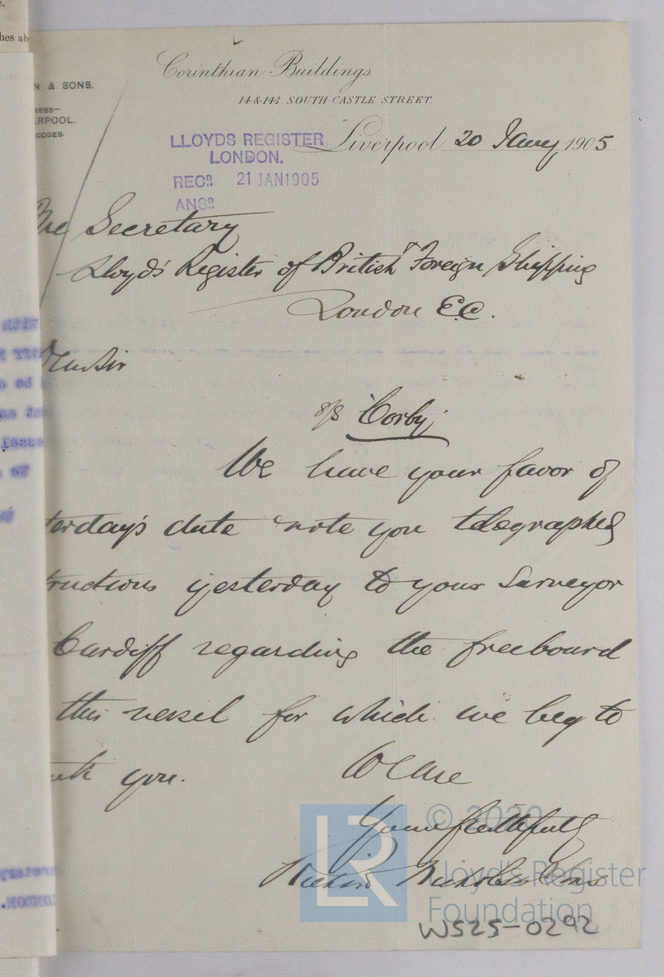 hes ab
N & SONS.
RESS—
ERPOOL.
CODES.
Corinthian Buildings.
SOUTH CASTLE STREET.
Liverpool 20 Jany 1905
LLOYDS REGISTER
LONDON.
REC^D. 21 JAN 1905
ANS^D.
The Secretary
Lloyd's Register of British & Foreign Shipping
London E.C.
Dear Sir
s/s "Corby"
We have your favor of
terday's date & note you telegraphed
tructions yesterday to your Surveyor
Cardiff regarding the freeboard
this vessel for which we beg to
nk you.
We are
Yours faithfully
Nicholson & Sons
© 2020
LR
Lloyd's Register
Foundation
W525-0292